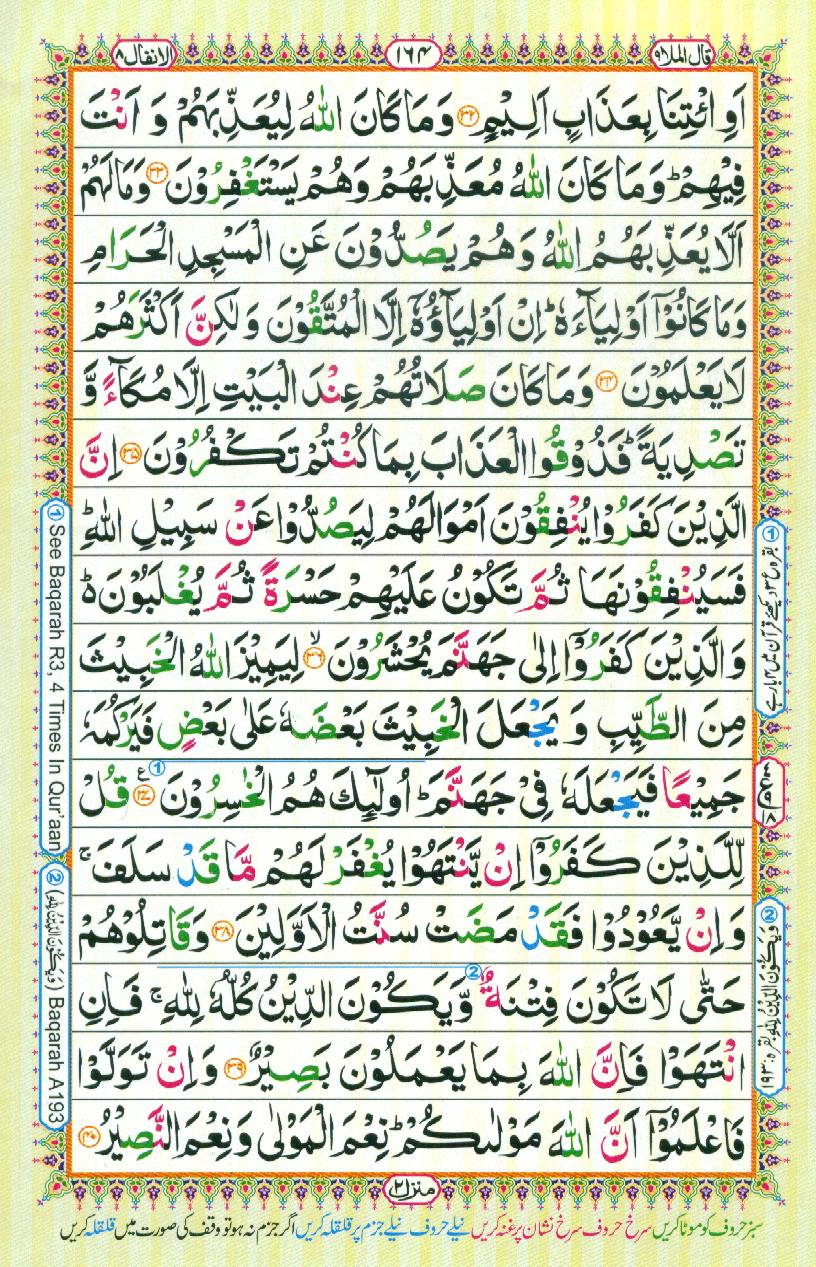 قال الملا ۹
۱۶۴
الانفال ۸
اَوِ ائْتِنَا بِعَذَابٍ اَلِيْمٍ ۝۳۲ وَمَا كَانَ اللّٰهُ لِيُعَذِّبَهُمْ وَ اَنْتَ
فِيْهِمْ ؕ وَمَا كَانَ اللّٰهُ مُعَذِّبَهُمْ وَهُمْ يَسْتَغْفِرُوْنَ ۝۳۳ وَمَا لَهُمْ
اَلَّا يُعَذِّبَهُمُ اللّٰهُ وَهُمْ يَصُدُّوْنَ عَنِ الْمَسْجِدِ الْحَرَامِ
وَمَا كَانُوْۤا اَوْلِيَآءَهٗ ؕ اِنْ اَوْلِيَآؤُهٗۤ اِلَّا الْمُتَّقُوْنَ وَلٰكِنَّ اَكْثَرَهُمْ
لَا يَعْلَمُوْنَ ۝۳۴ وَمَا كَانَ صَلَاتُهُمْ عِنْدَ الْبَيْتِ اِلَّا مُكَآءً وَّ
تَصْدِيَةً ؕ فَذُوْقُوا الْعَذَابَ بِمَا كُنْتُمْ تَكْفُرُوْنَ ۝۳۵ اِنَّ
الَّذِيْنَ كَفَرُوْا يُنْفِقُوْنَ اَمْوَالَهُمْ لِيَصُدُّوْا عَنْ سَبِيْلِ اللّٰهِ ؕ
فَسَيُنْفِقُوْنَهَا ثُمَّ تَكُوْنُ عَلَيْهِمْ حَسْرَةً ثُمَّ يُغْلَبُوْنَ ۬ؕ
وَالَّذِيْنَ كَفَرُوْۤا اِلٰى جَهَنَّمَ يُحْشَرُوْنَ ۝۳۶ۙ لِيَمِيْزَ اللّٰهُ الْخَبِيْثَ
مِنَ الطَّيِّبِ وَ يَجْعَلَ الْخَبِيْثَ بَعْضَهٗ عَلٰى بَعْضٍ فَيَرْكُمَهٗ
جَمِيْعًا فَيَجْعَلَهٗ فِيْ جَهَنَّمَ ؕ اُولٰٓئِكَ هُمُ الْخٰسِرُوْنَ ۝۳۷ ع ① قُلْ
لِّلَّذِيْنَ كَفَرُوْۤا اِنْ يَّنْتَهُوْا يُغْفَرْ لَهُمْ مَّا قَدْ سَلَفَ ۚ
وَ اِنْ يَّعُوْدُوْا فَقَدْ مَضَتْ سُنَّتُ الْاَوَّلِيْنَ ۝۳۸ وَقَاتِلُوْهُمْ
حَتّٰى لَا تَكُوْنَ فِتْنَةٌ ② وَّيَكُوْنَ الدِّيْنُ كُلُّهٗ لِلّٰهِ ۚ فَاِنِ
انْتَهَوْا فَاِنَّ اللّٰهَ بِمَا يَعْمَلُوْنَ بَصِيْرٌ ۝۳۹ وَاِنْ تَوَلَّوْا
فَاعْلَمُوْۤا اَنَّ اللّٰهَ مَوْلٰىكُمْ ؕ نِعْمَ الْمَوْلٰى وَنِعْمَ النَّصِيْرُ ۝۴۰
① See Baqarah R3, 4 Times In Qur'aan
② (وَيَكُوْنَ الدِّيْنُ لِلّٰهِ) Baqarah A193
① بقرہ ع ۳ دیکھئے قرآن میں ۴ بار ہے
② وَيَكُوْنَ الدِّيْنُ لِلّٰهِ بقرہ: ۱۹۳
منزل ۲
سبز حروف کو موٹا کریں سرخ حروف سرخ نشان پر غنہ کریں نیلے حروف نیلے جزم پر قلقلہ کریں اگر جزم نہ ہو تو وقف کی صورت میں قلقلہ کریں